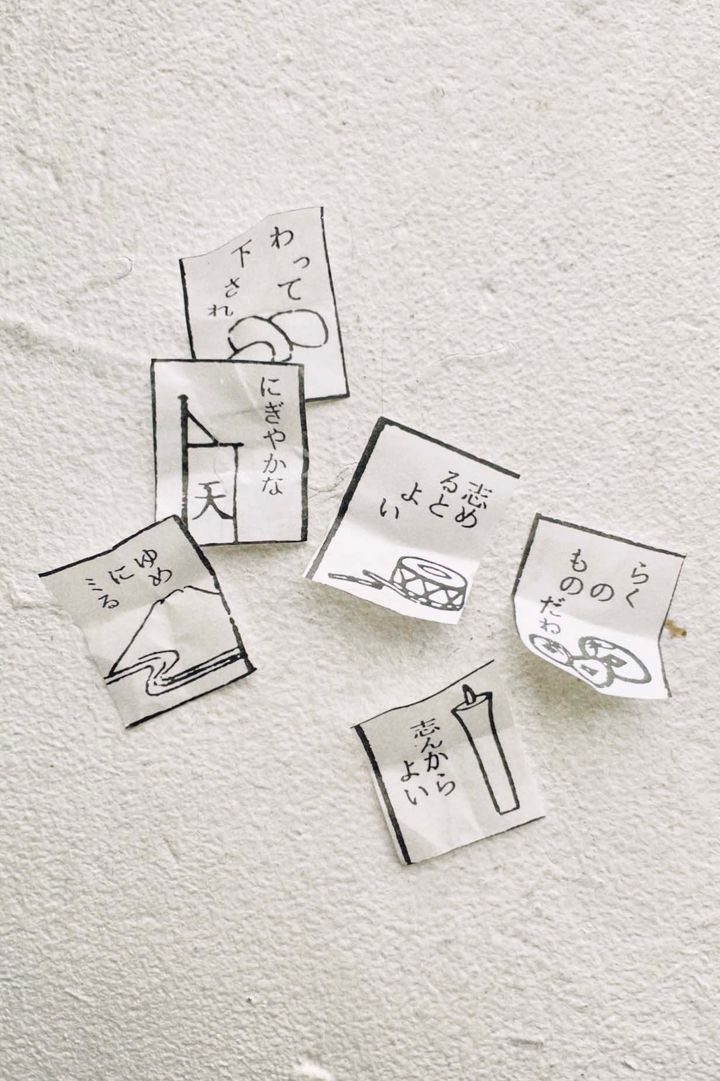 わって
下され
にぎやかな
天
志め
ると
よい
らく
もの
の
だね
ゆめ
に
ミる
志んから
よい